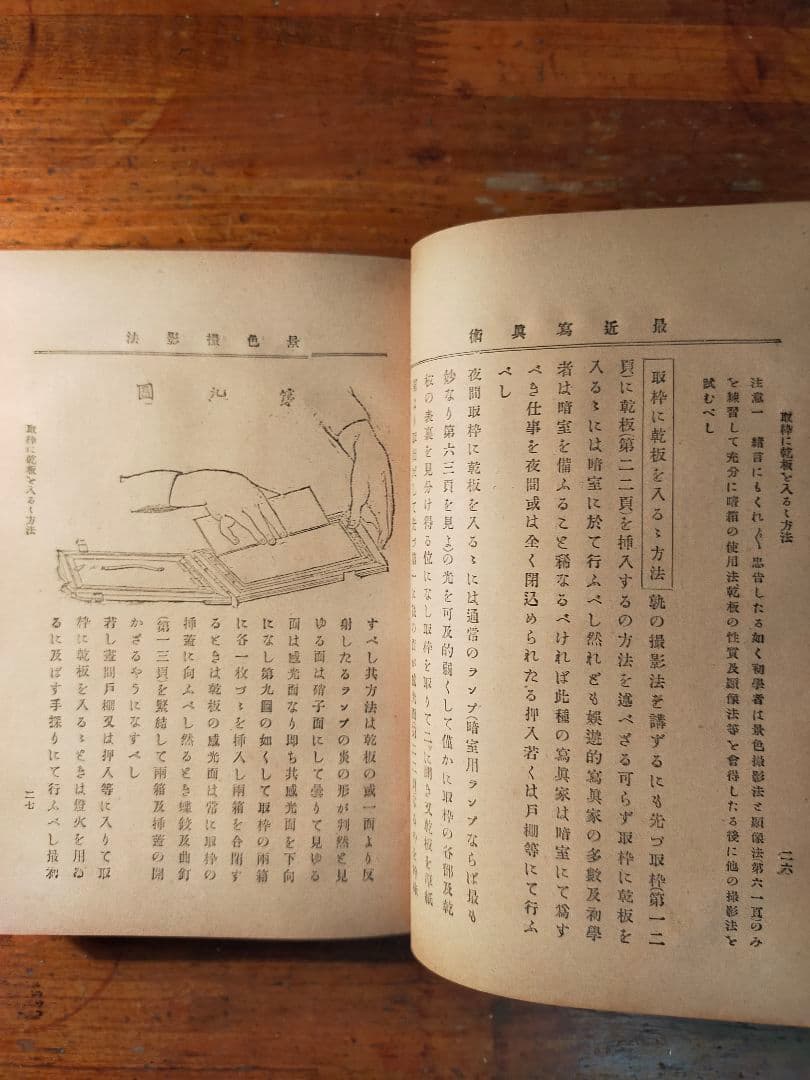 最近寫眞術
取枠に乾板を入るゝ方法
二六
注意一 緒言にもくれ〲忠告したる如く初學者は景色撮影法と顯像法第六一頁)のみ
を練習して充分に暗箱の使用法乾板の性質及顯像法等を會得したる後に他の撮影法を
試むべし
取枠に乾板を入るゝ方法 孰の撮影法を講ずるにも先づ取枠(第一二
頁)に乾板(第二二頁)を挿入するの方法を述べざる可らず取枠に乾板を
入るゝには暗室に於て行ふべし然れども娯遊的寫眞家の多數及初學
者は暗室を備ふること稀なるべければ此種の寫眞家は暗室にて爲す
べき仕事を夜間或は全く閉込められたる押入若くは戸棚等にて行ふ
べし
夜間取枠に乾板を入るゝには通常のランプ(暗室用ランプならば最も
妙なり第六三頁を見よ)の光を可及的弱くして僅かに取枠の各部及乾
板の表裏を見分け得る位になし取枠を取りて二つに開き又乾板を厚紙
景色撮影法
第九圖
取枠に乾板を入るゝ方法
二七
すべし其方法は乾板の或一面より反
射したるランプの炎の形が判然と見
ゆる面は硝子面にして曇りて見ゆる
面は感光面なり即ち其感光面を下向
になし第九圖の如くして取枠の兩箱
に各一枚づゝを挿入し兩箱を合閉す
るときは乾板の感光面は常に取枠の
挿蓋に向ふべし然るとき螺鋲及曲釘
(第一三頁)を緊結して兩箱及挿蓋の開
かざるやうになすべし
若し晝間戸棚又は押入等に入りて取
枠に乾板を入るゝときは燈火を用ゐ
るに及ばす手探りにて行ふべし最初